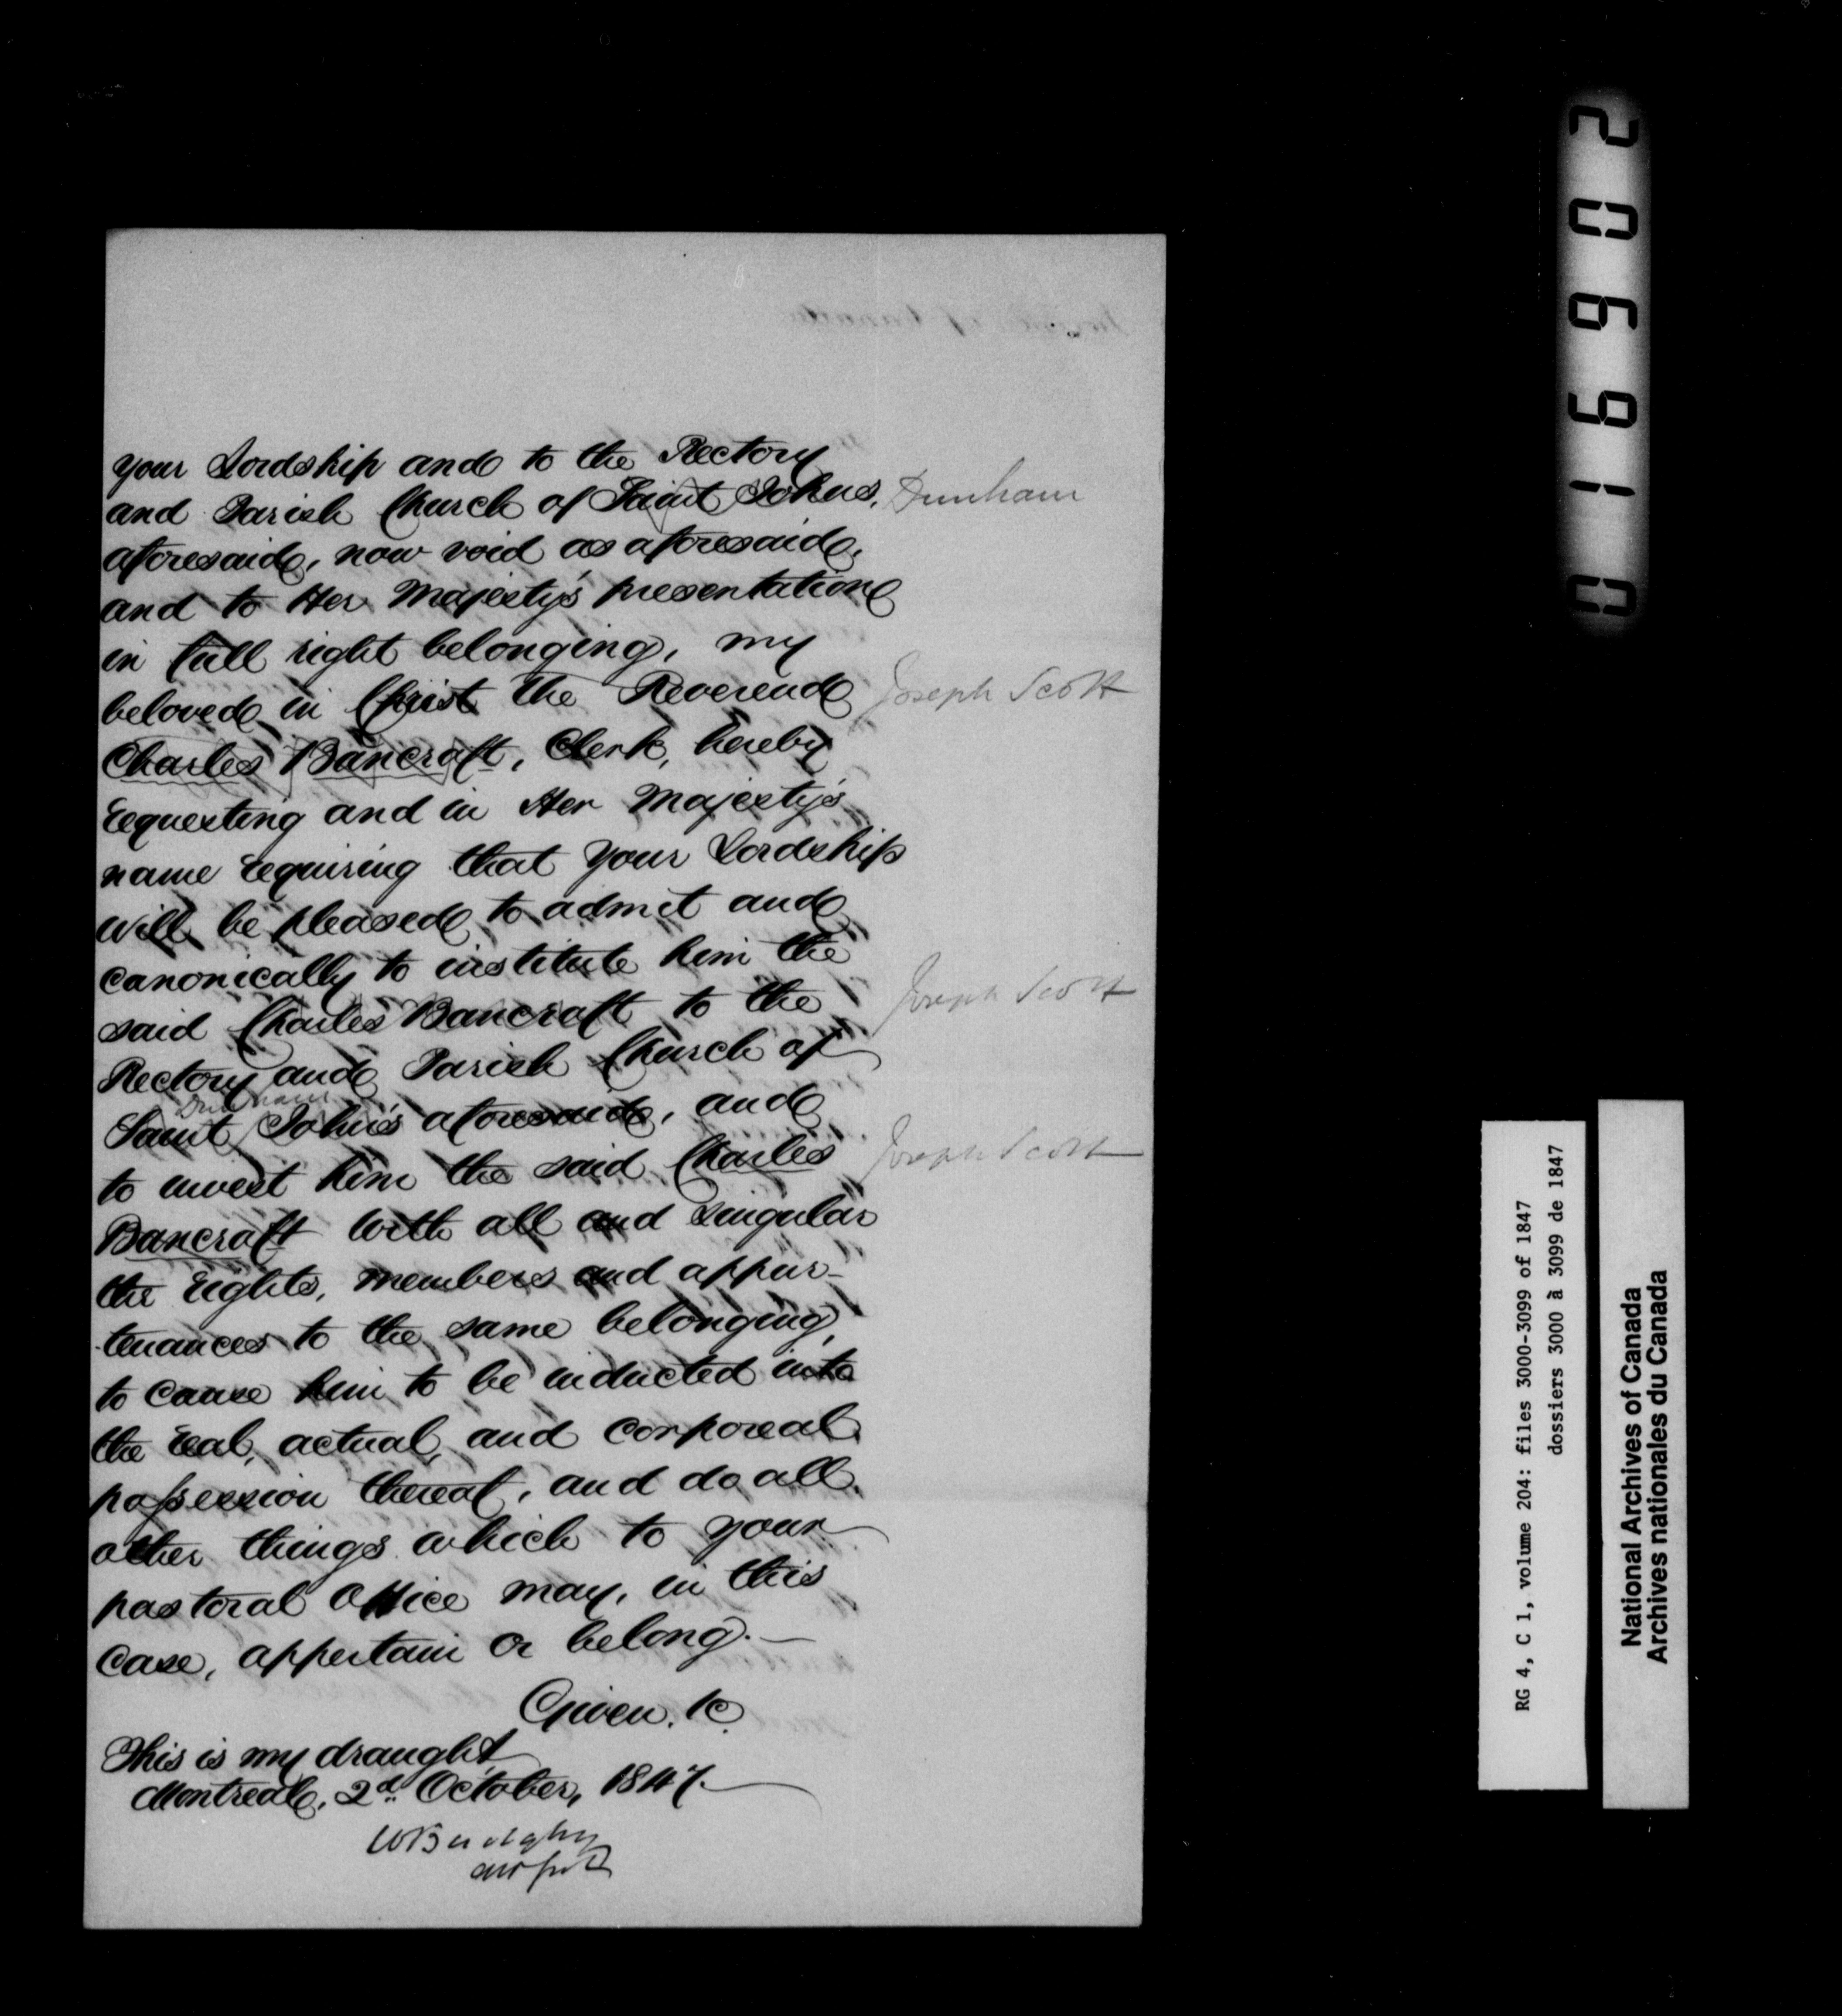 your Lordship and to the Rectory
and Parish Church of Saint Johns, Dunham
aforesaid, now void as aforesaid,
and to Her Majesty's presentation
in full right belonging, my
beloved in Christ the Reverend Joseph Scott
Charles Bancroft, Clerk, hereby
requesting and in Her Majesty's
name requiring that your Lordship
will be pleased to admit and
canonically to institute him the
said Charles Bancroft to the Joseph Scott
Rectory and Parish Church of
Dunham
Saint John's aforesaid, and
to invest him the said Charles Joseph Scott
Bancroft with all and singular
the rights, members and appur-
tenances to the same belonging,
to cause him to be inducted into
the real, actual, and corporeal
possession thereof, and do all
other things which to your
pastoral office may, in this
case, appertain or belong.—
Given. &c.
This is my draught
Montreal, 2d. October, 1847.
016902
RG 4, C 1, volume 204: files 3000-3099 of 1847
dossiers 3000 à 3099 de 1847
National Archives of Canada
Archives nationales du Canada